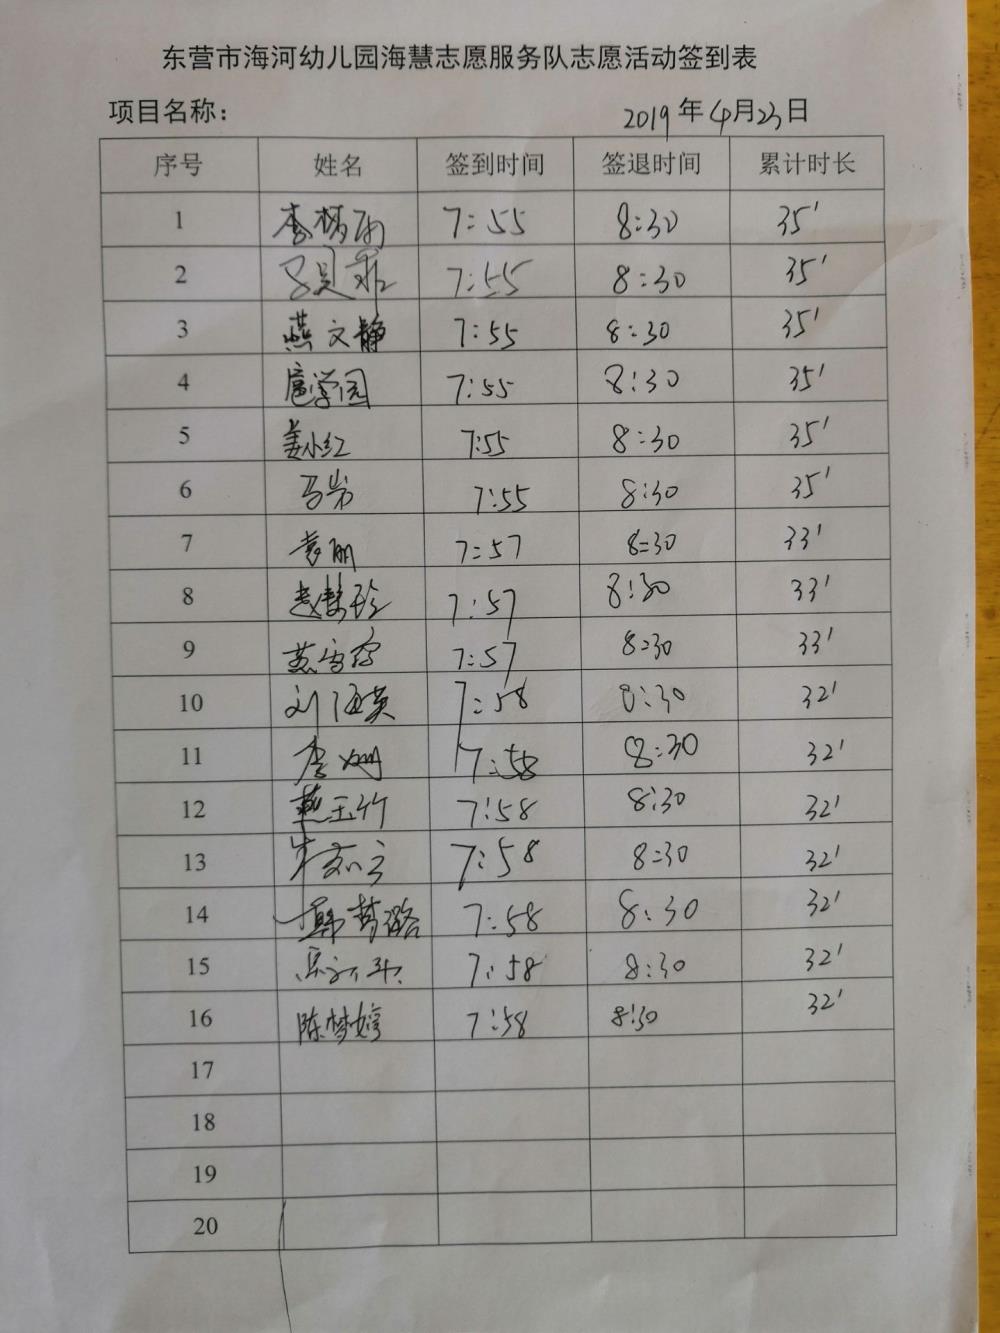 东营市海河幼儿园海慧志愿服务队志愿活动签到表
项目名称： 2019年4月23日
序号 姓名 签到时间 签退时间 累计时长
1 李梦雨 7:55 8:30 35'
2 7:55 8:30 35'
3 燕文静 7:55 8:30 35'
4 扈学园 7:55 8:30 35'
5 姜小红 7:55 8:30 35'
6 7:55 8:30 35'
7 袁丽 7:57 8:30 33'
8 7:57 8:30 33'
9 7:57 8:30 33'
10 刘海英 7:58 8:30 32'
11 李姗 7:58 8:30 32'
12 燕玉竹 7:58 8:30 32'
13 7:58 8:30 32'
14 韩梦璐 7:58 8:30 32'
15 7:58 8:30 32'
16 陈梦婷 7:58 8:30 32'
17
18
19
20